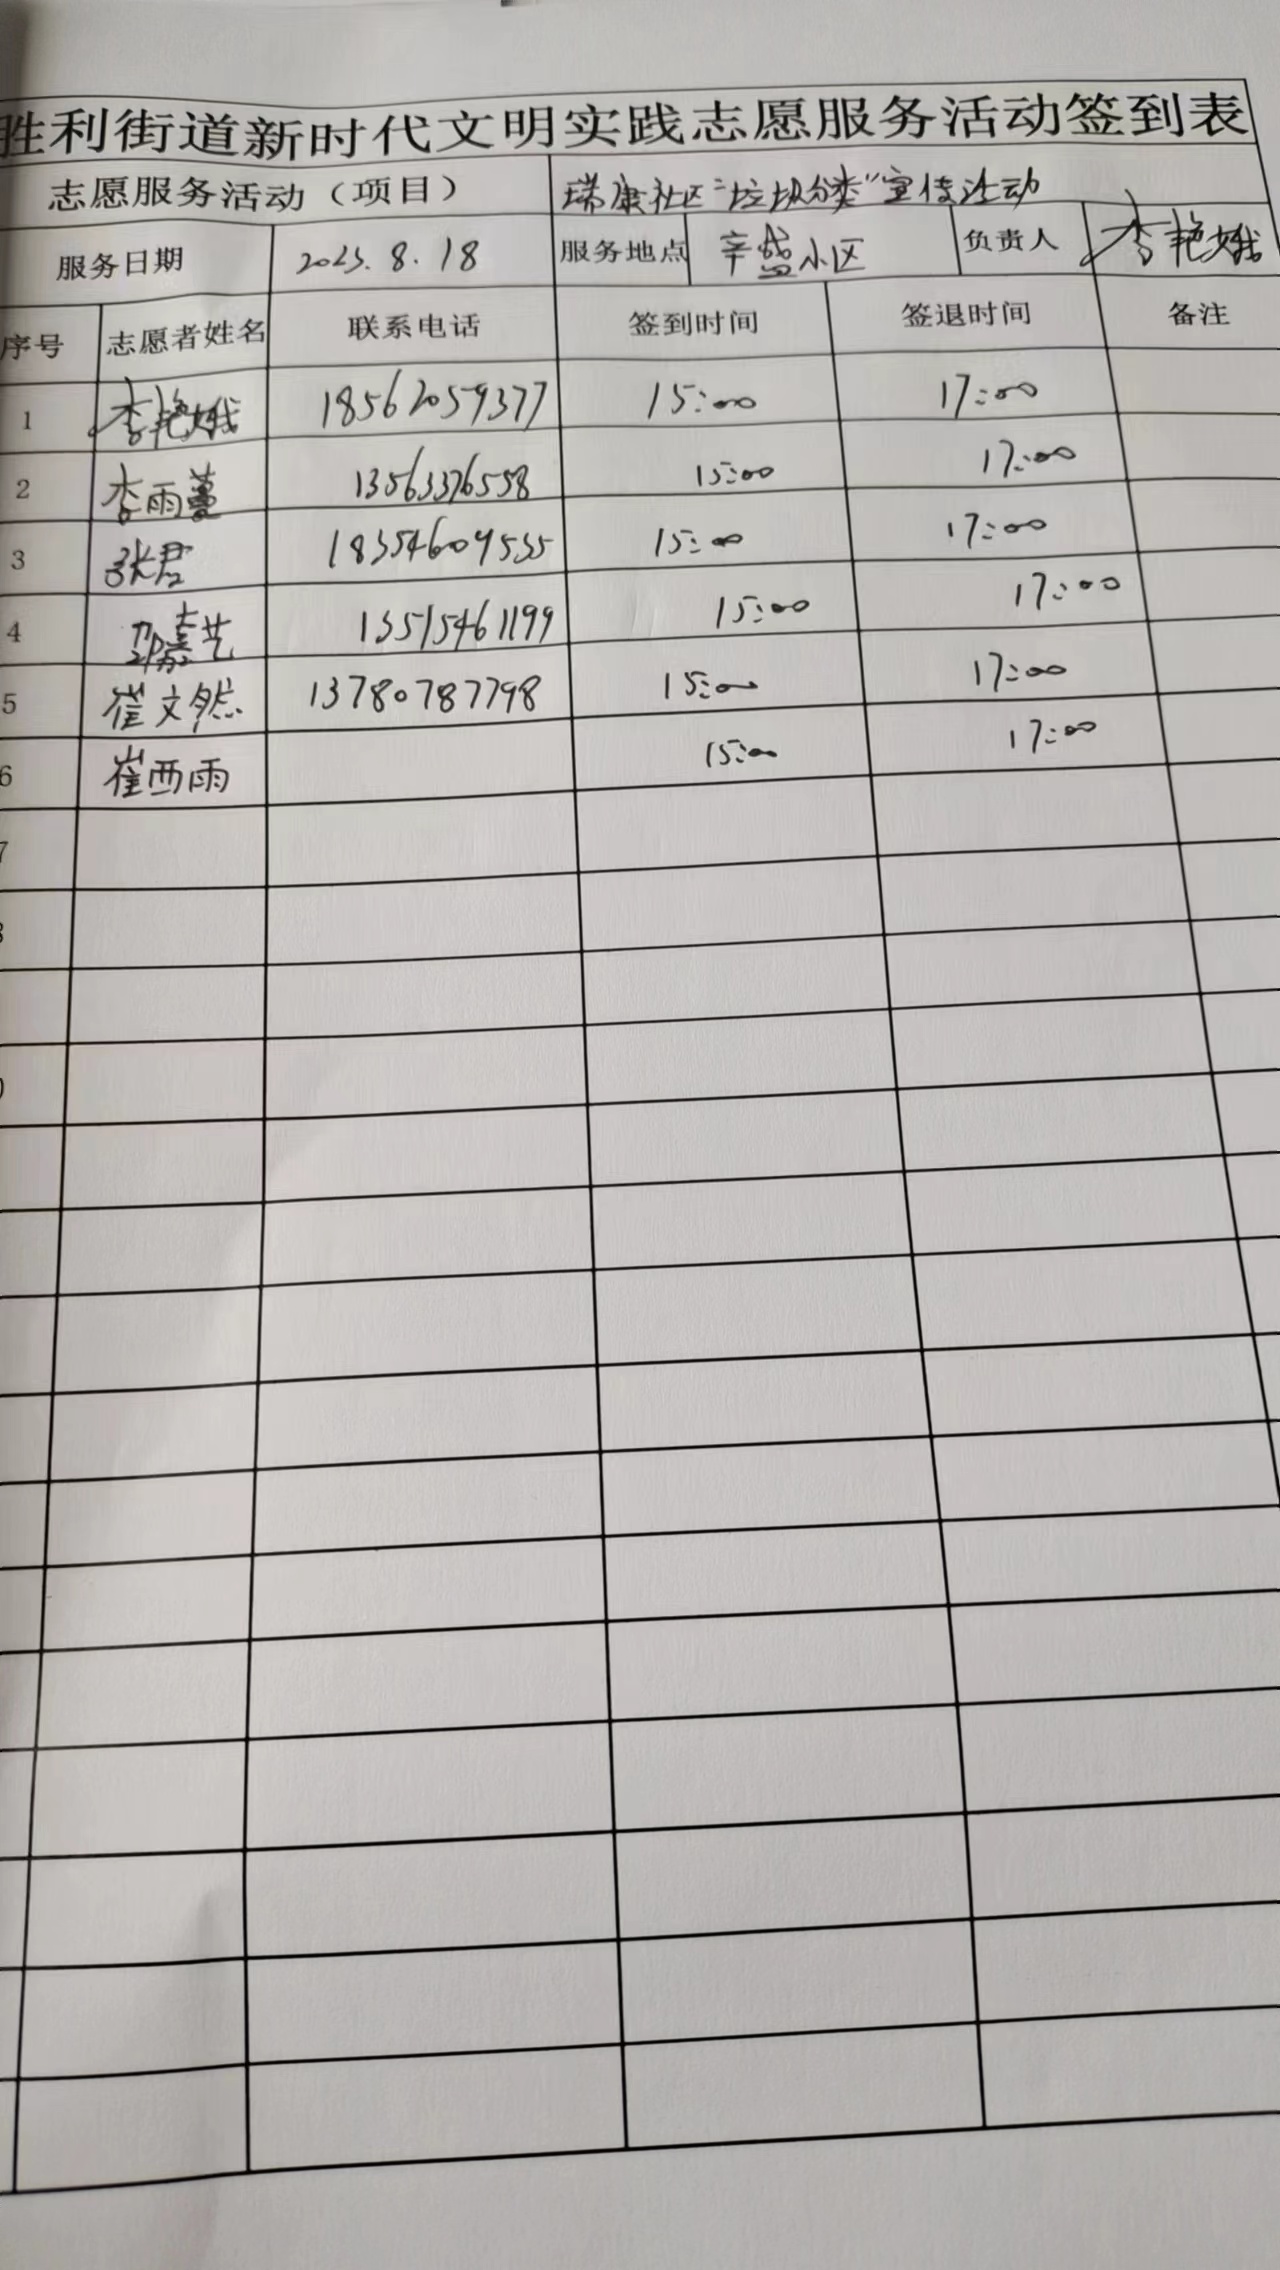 胜利街道新时代文明实践志愿服务活动签到表
志愿服务活动（项目） 瑞康社区“垃圾分类”宣传活动
服务日期 2023.8.18 服务地点 辛盛小区 负责人 李艳娥
序号 志愿者姓名 联系电话 签到时间 签退时间 备注
1 李艳娥 18562059377 15:00 17:00
2 李雨蔓 13563376558 15:00 17:00
3 张君 18354609535 15:00 17:00
4 邵嘉艺 13515461199 15:00 17:00
5 崔文然 13780787798 15:00 17:00
6 崔西雨 15:00 17:00
7